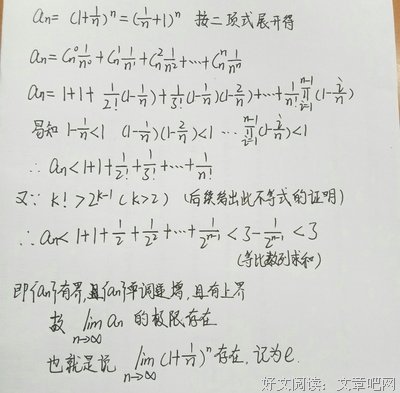 an = (1+1/n)^n = (1/n+1)^n 按二项式展开得
an = Cn^0 1/n^0 + Cn^1 1/n^1 + Cn^2 1/n^2 + … + Cn^n 1/n^n
an = 1+1+ 1/2!(1-1/n) + 1/3!(1-1/n)(1-2/n) + … + 1/n! ∏_{i=1}^{n-1}(1-i/n)
易知 1-1/n<1 (1-1/n)(1-2/n)<1 … ∏_{i=1}^{n-1}(1-i/n)<1
∴ an < 1+1+1/2!+1/3!+…+1/n!
又∵ k! > 2^{k-1} (k>2) (后续给出此不等式的证明)
∴ an < 1+1+1/2+1/2^2+…+1/2^{n-1} < 3 - 1/2^{n-1} < 3
(等比数列求和)
即{an}有界,且{an}单调递增,且有上界
故 lim_{n→∞} an 的极限存在
也就是说 lim_{n→∞} (1+1/n)^n 存在,记为e.
好文阅读:文章吧网